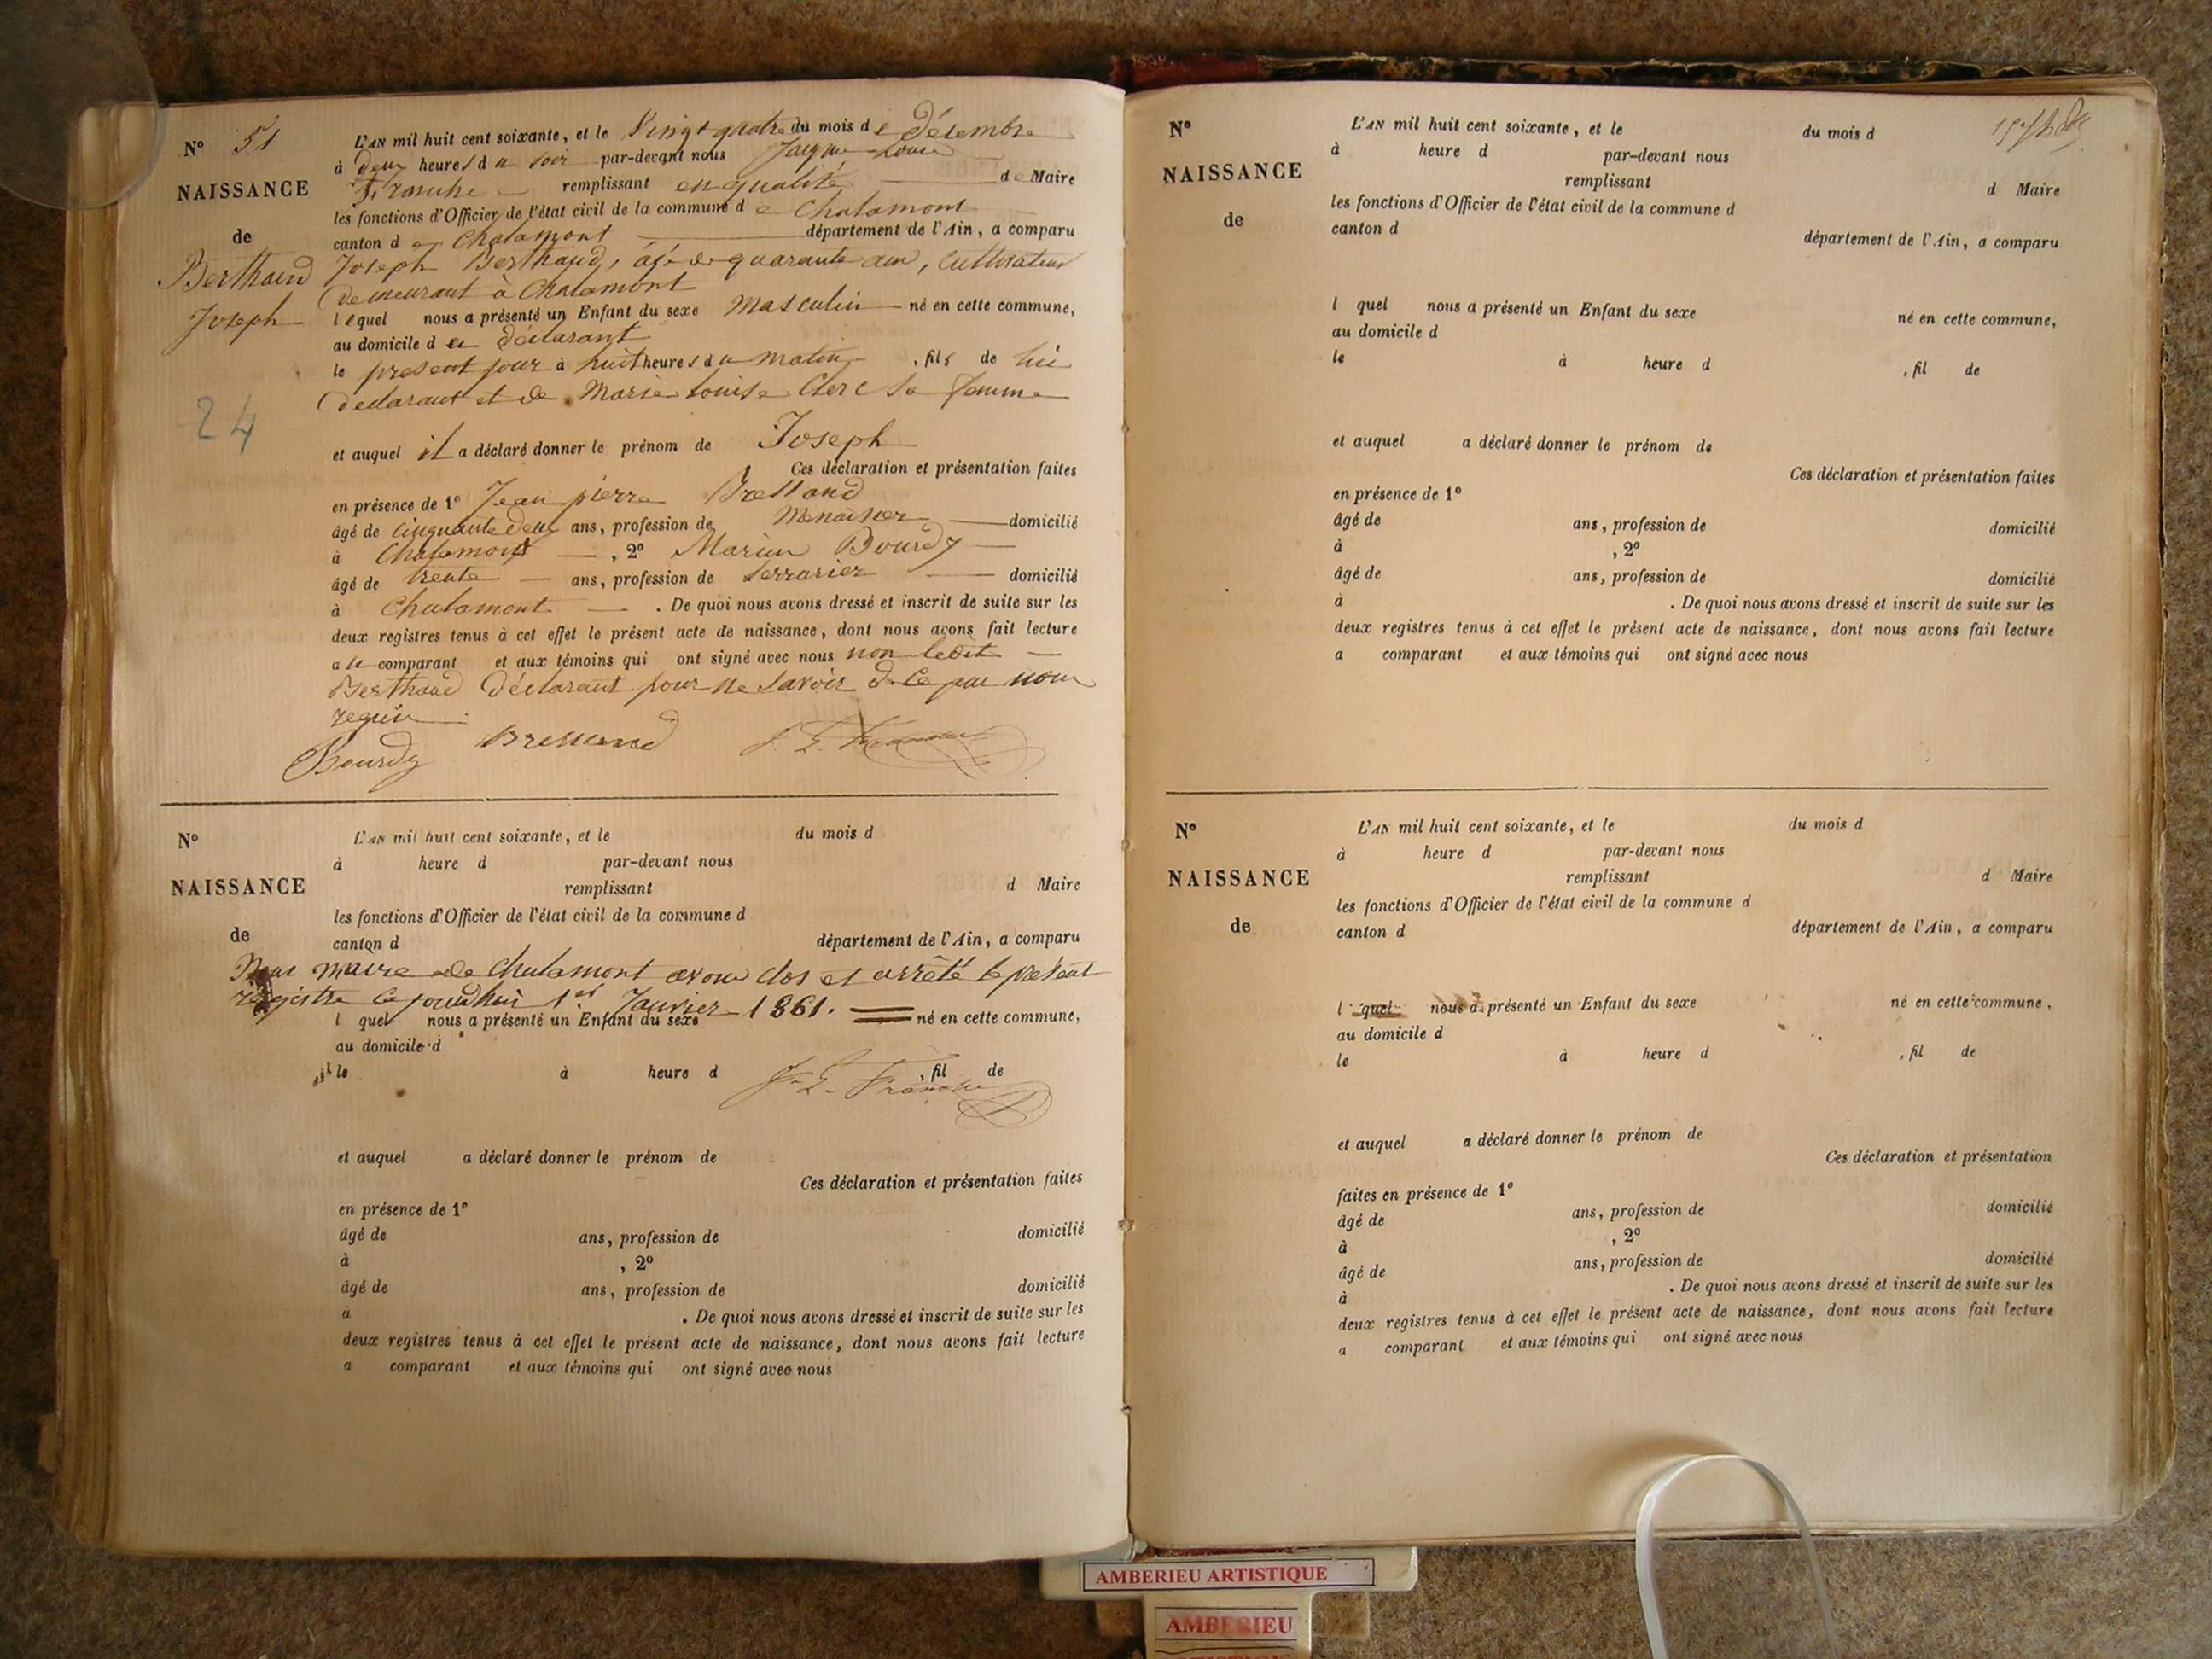 N° 51
NAISSANCE
de
Berthaud
Joseph
24
L'AN mil huit cent soixante, et le Vingt quatre du mois de décembre
à deux heures du soir par-devant nous Jacques Louis
Franche remplissant en qualité de Maire
les fonctions d'Officier de l'état civil de la commune de Chalamont
canton de Chalamont département de l'Ain, a comparu
Joseph Berthaud, âgé de quarante ans, cultivateur
demeurant à Chalamont
lequel nous a présenté un Enfant du sexe masculin né en cette commune,
au domicile du déclarant
le présent jour à huit heures du matin, fils de lui
déclarant et de Marie Louise Clerc sa femme
et auquel il a déclaré donner le prénom de Joseph
Ces déclaration et présentation faites
en présence de 1° Jean pierre Bressand
âgé de cinquante deux ans, profession de Menuisier domicilié
à Chalamont, 2° Marin Bourdy
âgé de trente ans, profession de serrurier domicilié
à Chalamont. De quoi nous avons dressé et inscrit de suite sur les
deux registres tenus à cet effet le présent acte de naissance, dont nous avons fait lecture
au comparant et aux témoins qui ont signé avec nous non ledit
Berthaud déclarant pour ne savoir de ce par nous
requis.
Bourdy Bressand J. L. Franche
N°
NAISSANCE
de
L'AN mil huit cent soixante, et le du mois d
à heure d par-devant nous
remplissant d Maire
les fonctions d'Officier de l'état civil de la commune d
canton d département de l'Ain, a comparu
Nous maire de Chalamont avons clos et arrêté le présent
registre ce jourd'hui 1er Janvier 1861.
l quel nous a présenté un Enfant du sexe né en cette commune,
au domicile d
le à heure d , fil de
J. L. Franche
et auquel a déclaré donner le prénom de
Ces déclaration et présentation faites
en présence de 1°
âgé de ans, profession de domicilié
à , 2°
âgé de ans, profession de domicilié
à . De quoi nous avons dressé et inscrit de suite sur les
deux registres tenus à cet effet le présent acte de naissance, dont nous avons fait lecture
a comparant et aux témoins qui ont signé avec nous
N°
NAISSANCE
de
L'AN mil huit cent soixante, et le du mois d
à heure d par-devant nous
remplissant d Maire
les fonctions d'Officier de l'état civil de la commune d
canton d département de l'Ain, a comparu
l quel nous a présenté un Enfant du sexe né en cette commune,
au domicile d
le à heure d , fil de
et auquel a déclaré donner le prénom de
Ces déclaration et présentation faites
en présence de 1°
âgé de ans, profession de domicilié
à , 2°
âgé de ans, profession de domicilié
à . De quoi nous avons dressé et inscrit de suite sur les
deux registres tenus à cet effet le présent acte de naissance, dont nous avons fait lecture
a comparant et aux témoins qui ont signé avec nous
N°
NAISSANCE
de
L'AN mil huit cent soixante, et le du mois d
à heure d par-devant nous
remplissant d Maire
les fonctions d'Officier de l'état civil de la commune d
canton d département de l'Ain, a comparu
l quel nous a présenté un Enfant du sexe né en cette commune,
au domicile d
le à heure d , fil de
et auquel a déclaré donner le prénom de
Ces déclaration et présentation
faites en présence de 1°
âgé de ans, profession de domicilié
à , 2°
âgé de ans, profession de domicilié
à . De quoi nous avons dressé et inscrit de suite sur les
deux registres tenus à cet effet le présent acte de naissance, dont nous avons fait lecture
a comparant et aux témoins qui ont signé avec nous
AMBERIEU ARTISTIQUE
AMBERIEU